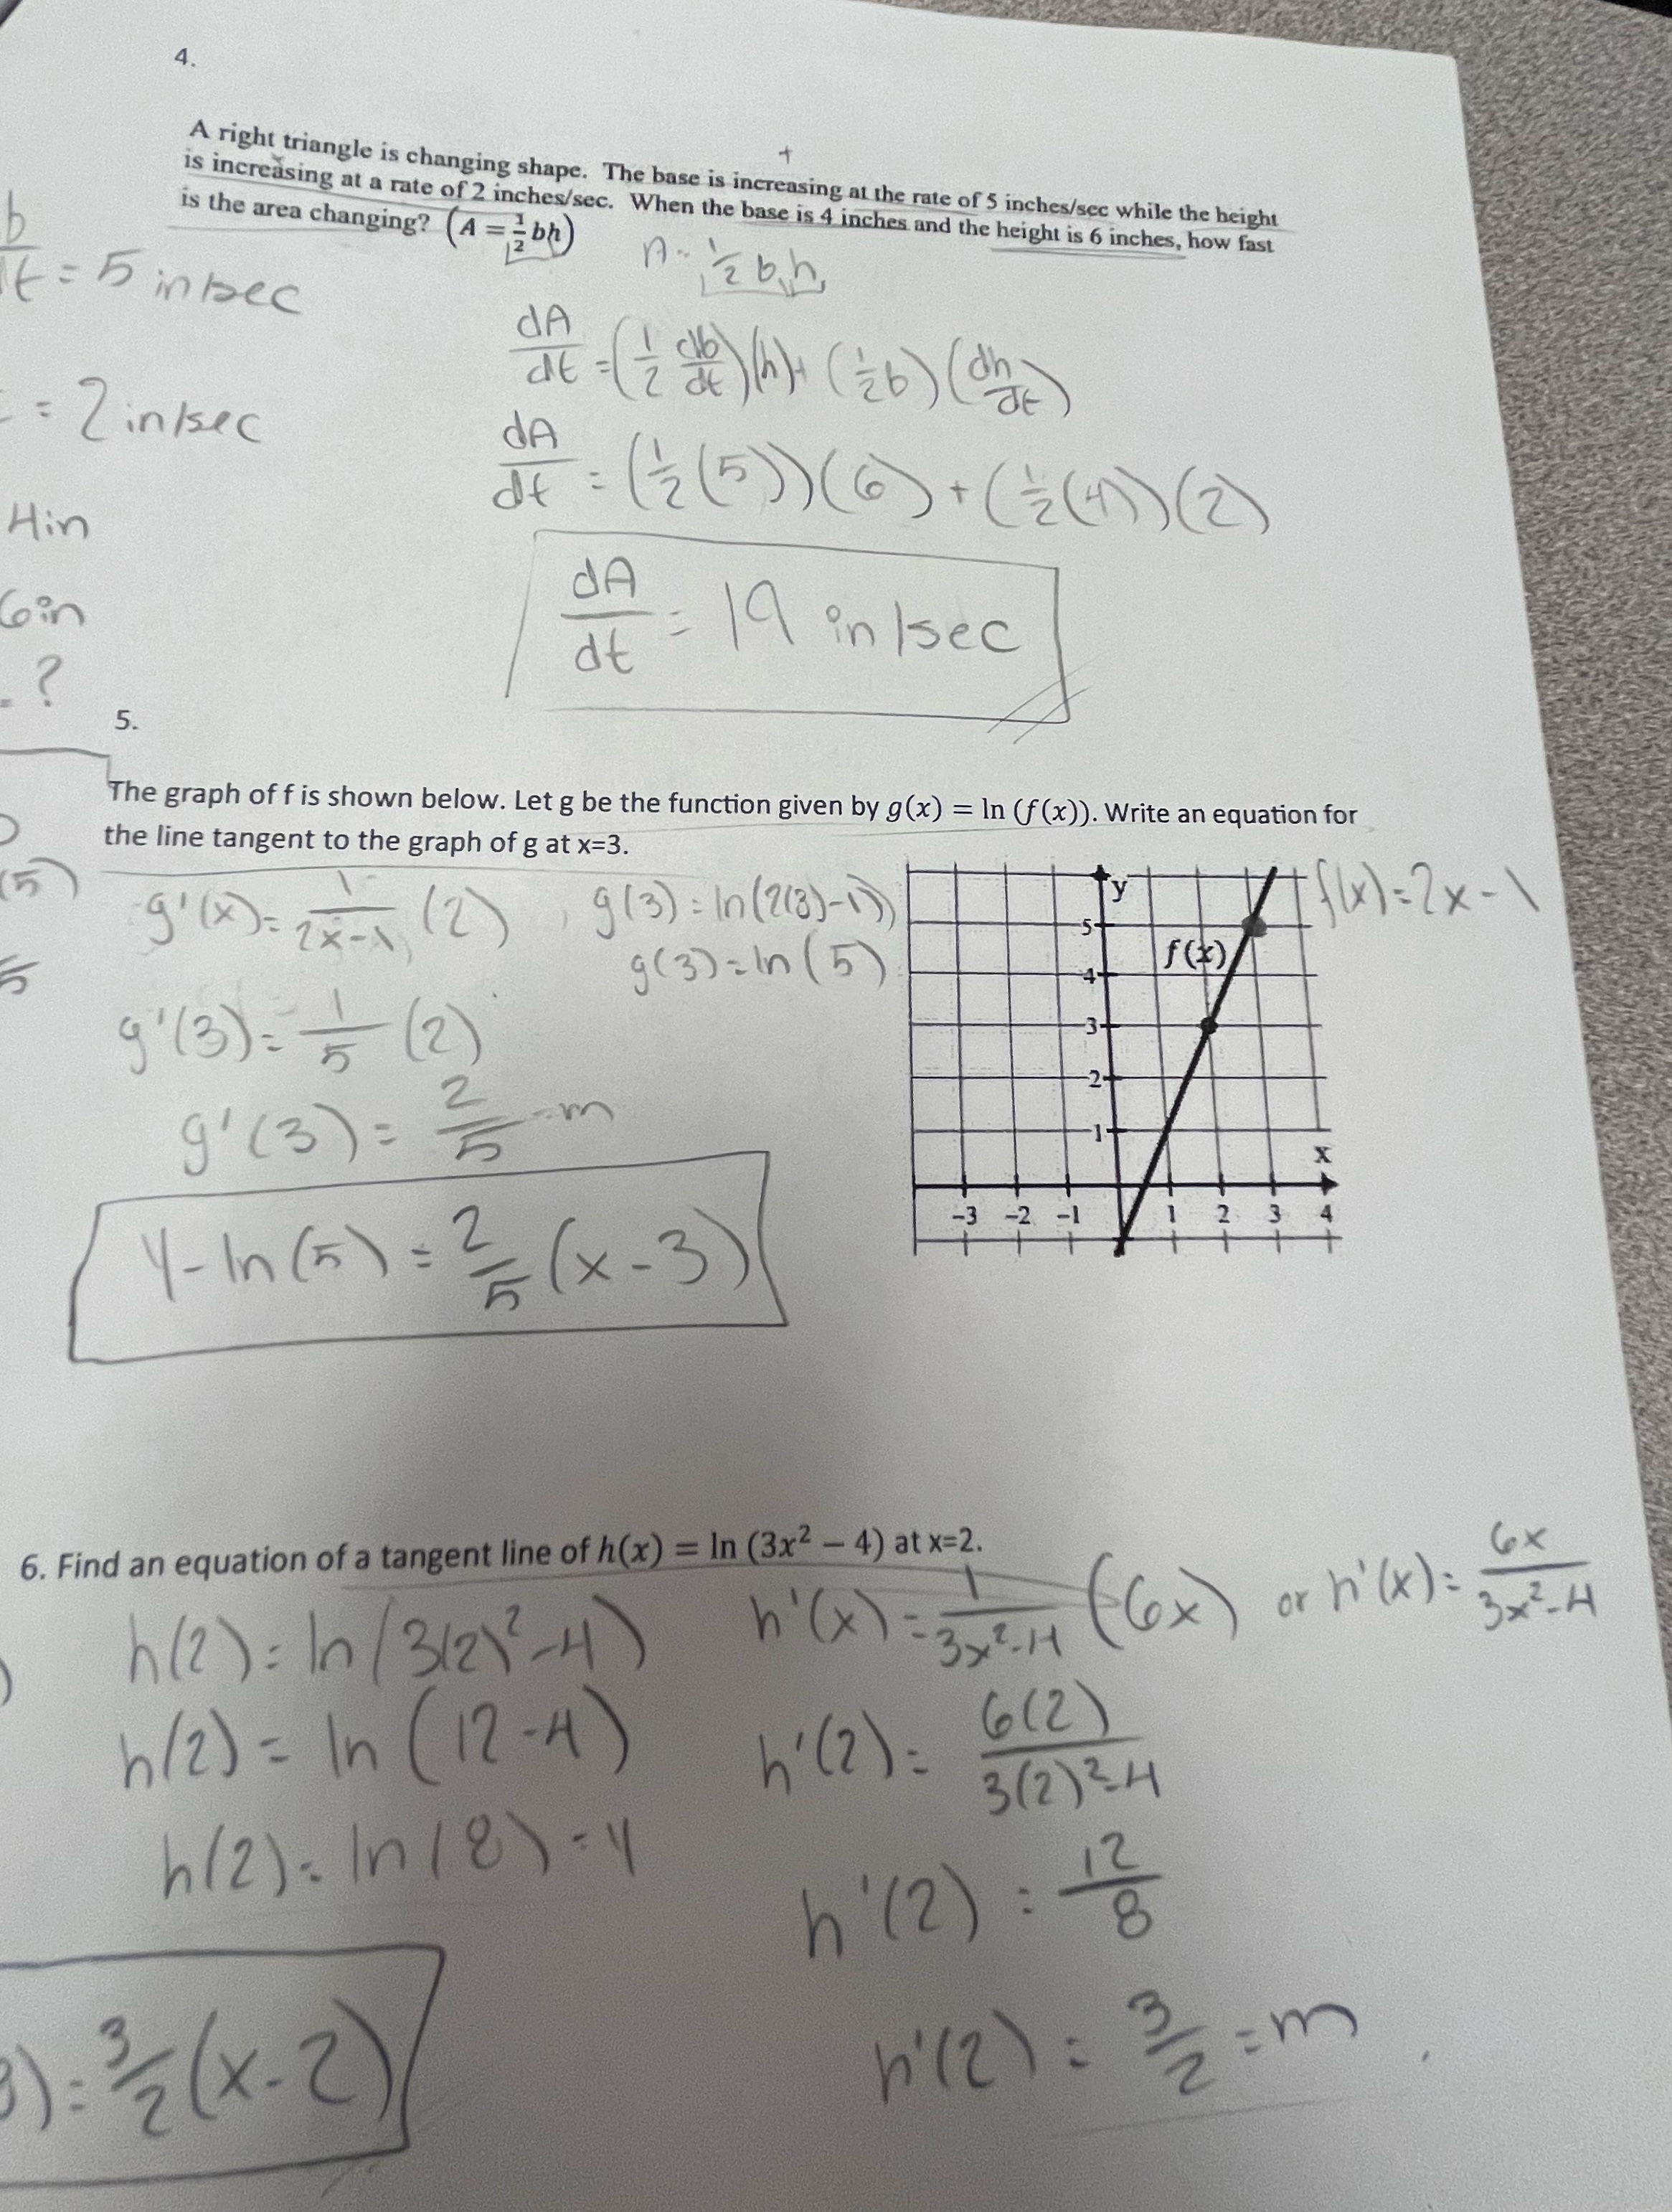 4.
A right triangle is changing shape. The base is increasing at the rate of 5 inches/sec while the height
is increasing at a rate of 2 inches/sec. When the base is 4 inches and the height is 6 inches, how fast
is the area changing? (A = 1/2 bh)
+
b/dt = 5 in/sec
= 2 in/sec
4in
6in
= ?
A = 1/2 b h
dA/dt = (1/2 db/dt)(h) + (1/2 b)(dh/dt)
dA/dt = (1/2 (5))(6) + (1/2 (4))(2)
dA/dt = 19 in/sec
5.
The graph of f is shown below. Let g be the function given by g(x) = ln (f(x)). Write an equation for
the line tangent to the graph of g at x=3.
(5)
5
g'(x) = 1/2x-1 (2)
g'(3) = 1/5 (2)
g'(3) = 2/5 = m
g(3) = ln(2(3)-1))
g(3) = ln(5)
y - ln(5) = 2/5 (x - 3)
f(x) = 2x - 1
y
5
f(x)
4
3
2
1
x
-3 -2 -1 1 2 3 4
6. Find an equation of a tangent line of h(x) = ln (3x² − 4) at x=2.
h(2) = ln(3(2)²-4)
h(2) = ln(12-4)
h(2) = ln(8) = y
h'(x) = 1/3x²-4 (6x) or h'(x) = 6x/3x²-4
h'(2) = 6(2)/3(2)²-4
h'(2) = 12/8
h'(2) = 3/2 = m
8) = 3/2 (x-2)